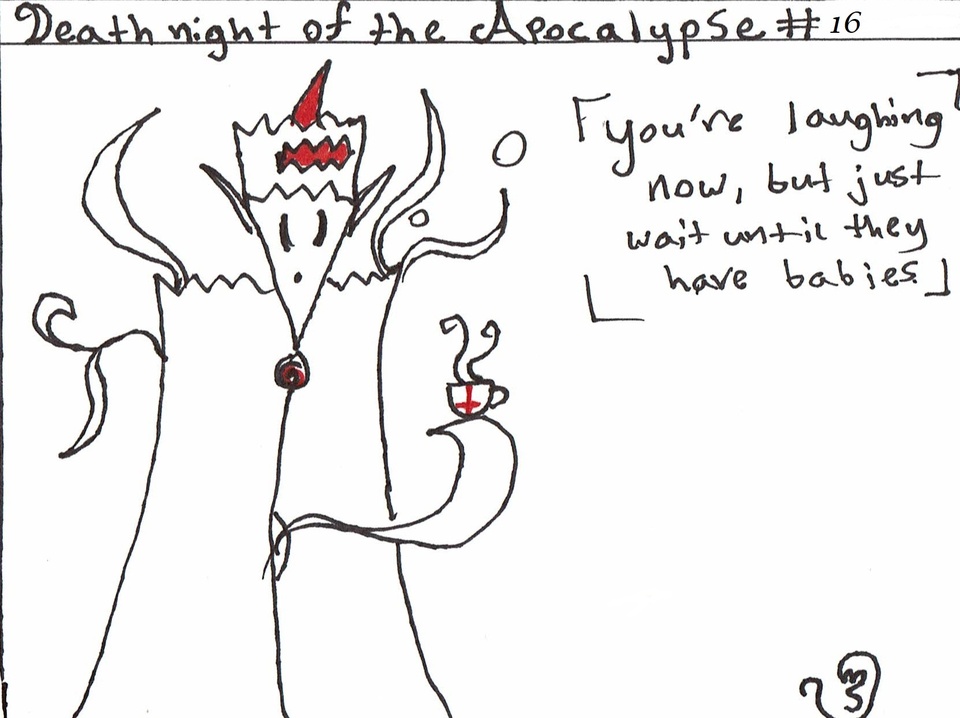 Death night of the Apocalypse # 16
you're laughing
now, but just
wait until they
have babies.